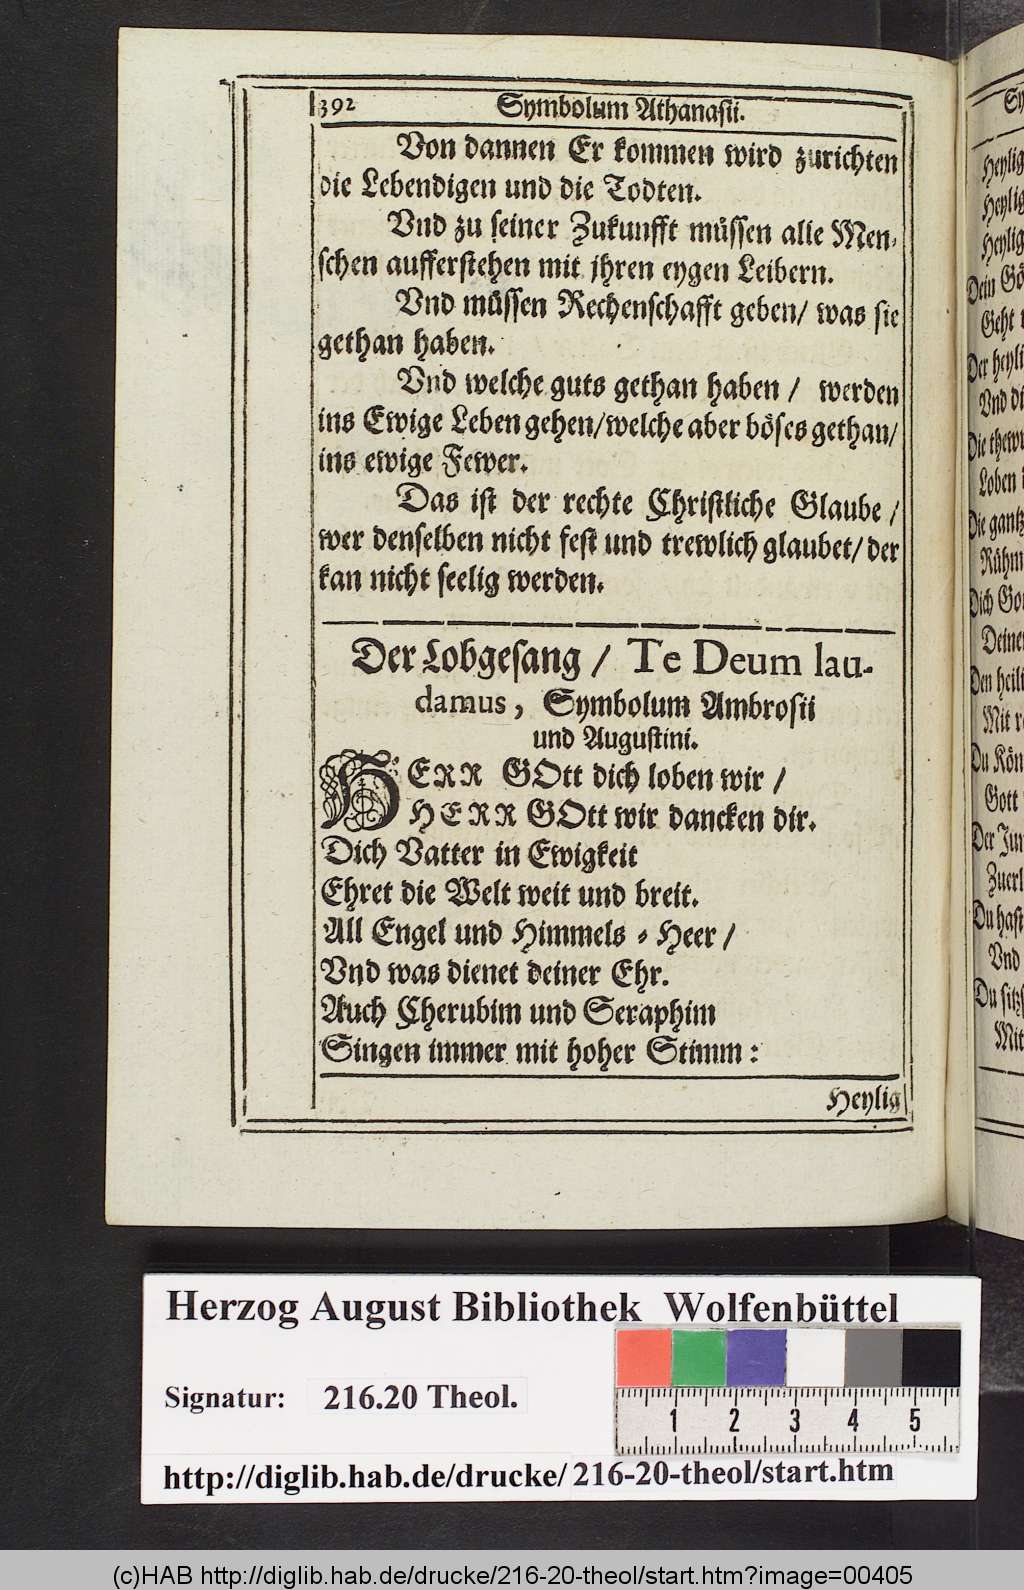 392 Symbolum Athanasii.
Von dannen Er kommen wird zurichten
die Lebendigen und die Todten.
Vnd zu seiner Zukunfft müssen alle Men-
schen aufferstehen mit jhren eygen Leibern.
Vnd müssen Rechenschafft geben/ was sie
gethan haben.
Vnd welche guts gethan haben / werden
ins Ewige Leben gehen/welche aber böses gethan/
ins ewige Fewer.
Das ist der rechte Christliche Glaube /
wer denselben nicht fest und trewlich glaubet/ der
kan nicht seelig werden.
Der Lobgesang / Te Deum lau-
damus, Symbolum Ambrosii
und Augustini.
HERR GOtt dich loben wir /
HERR GOtt wir dancken dir.
Dich Vatter in Ewigkeit
Ehret die Welt weit und breit.
All Engel und Himmels - Heer /
Vnd was dienet deiner Ehr.
Auch Cherubim und Seraphim
Singen immer mit hoher Stimm :
Heylig
Sy
Heylig
Heylig
Heylig
Dein Gö
Geht
Der heyli
Vnd di
Die thewr
Loben
Die gantz
Rühm
Dich Got
Deinen
Den heili
Mit re
Du Kön
Gott
Der Jun
Zuerl
Du hast
Vnd
Du sitzs
Mit
Herzog August Bibliothek Wolfenbüttel
Signatur: 216.20 Theol.
1 2 3 4 5
http://diglib.hab.de/drucke/ 216-20-theol/start.htm
(c)HAB http://diglib.hab.de/drucke/216-20-theol/start.htm?image=00405